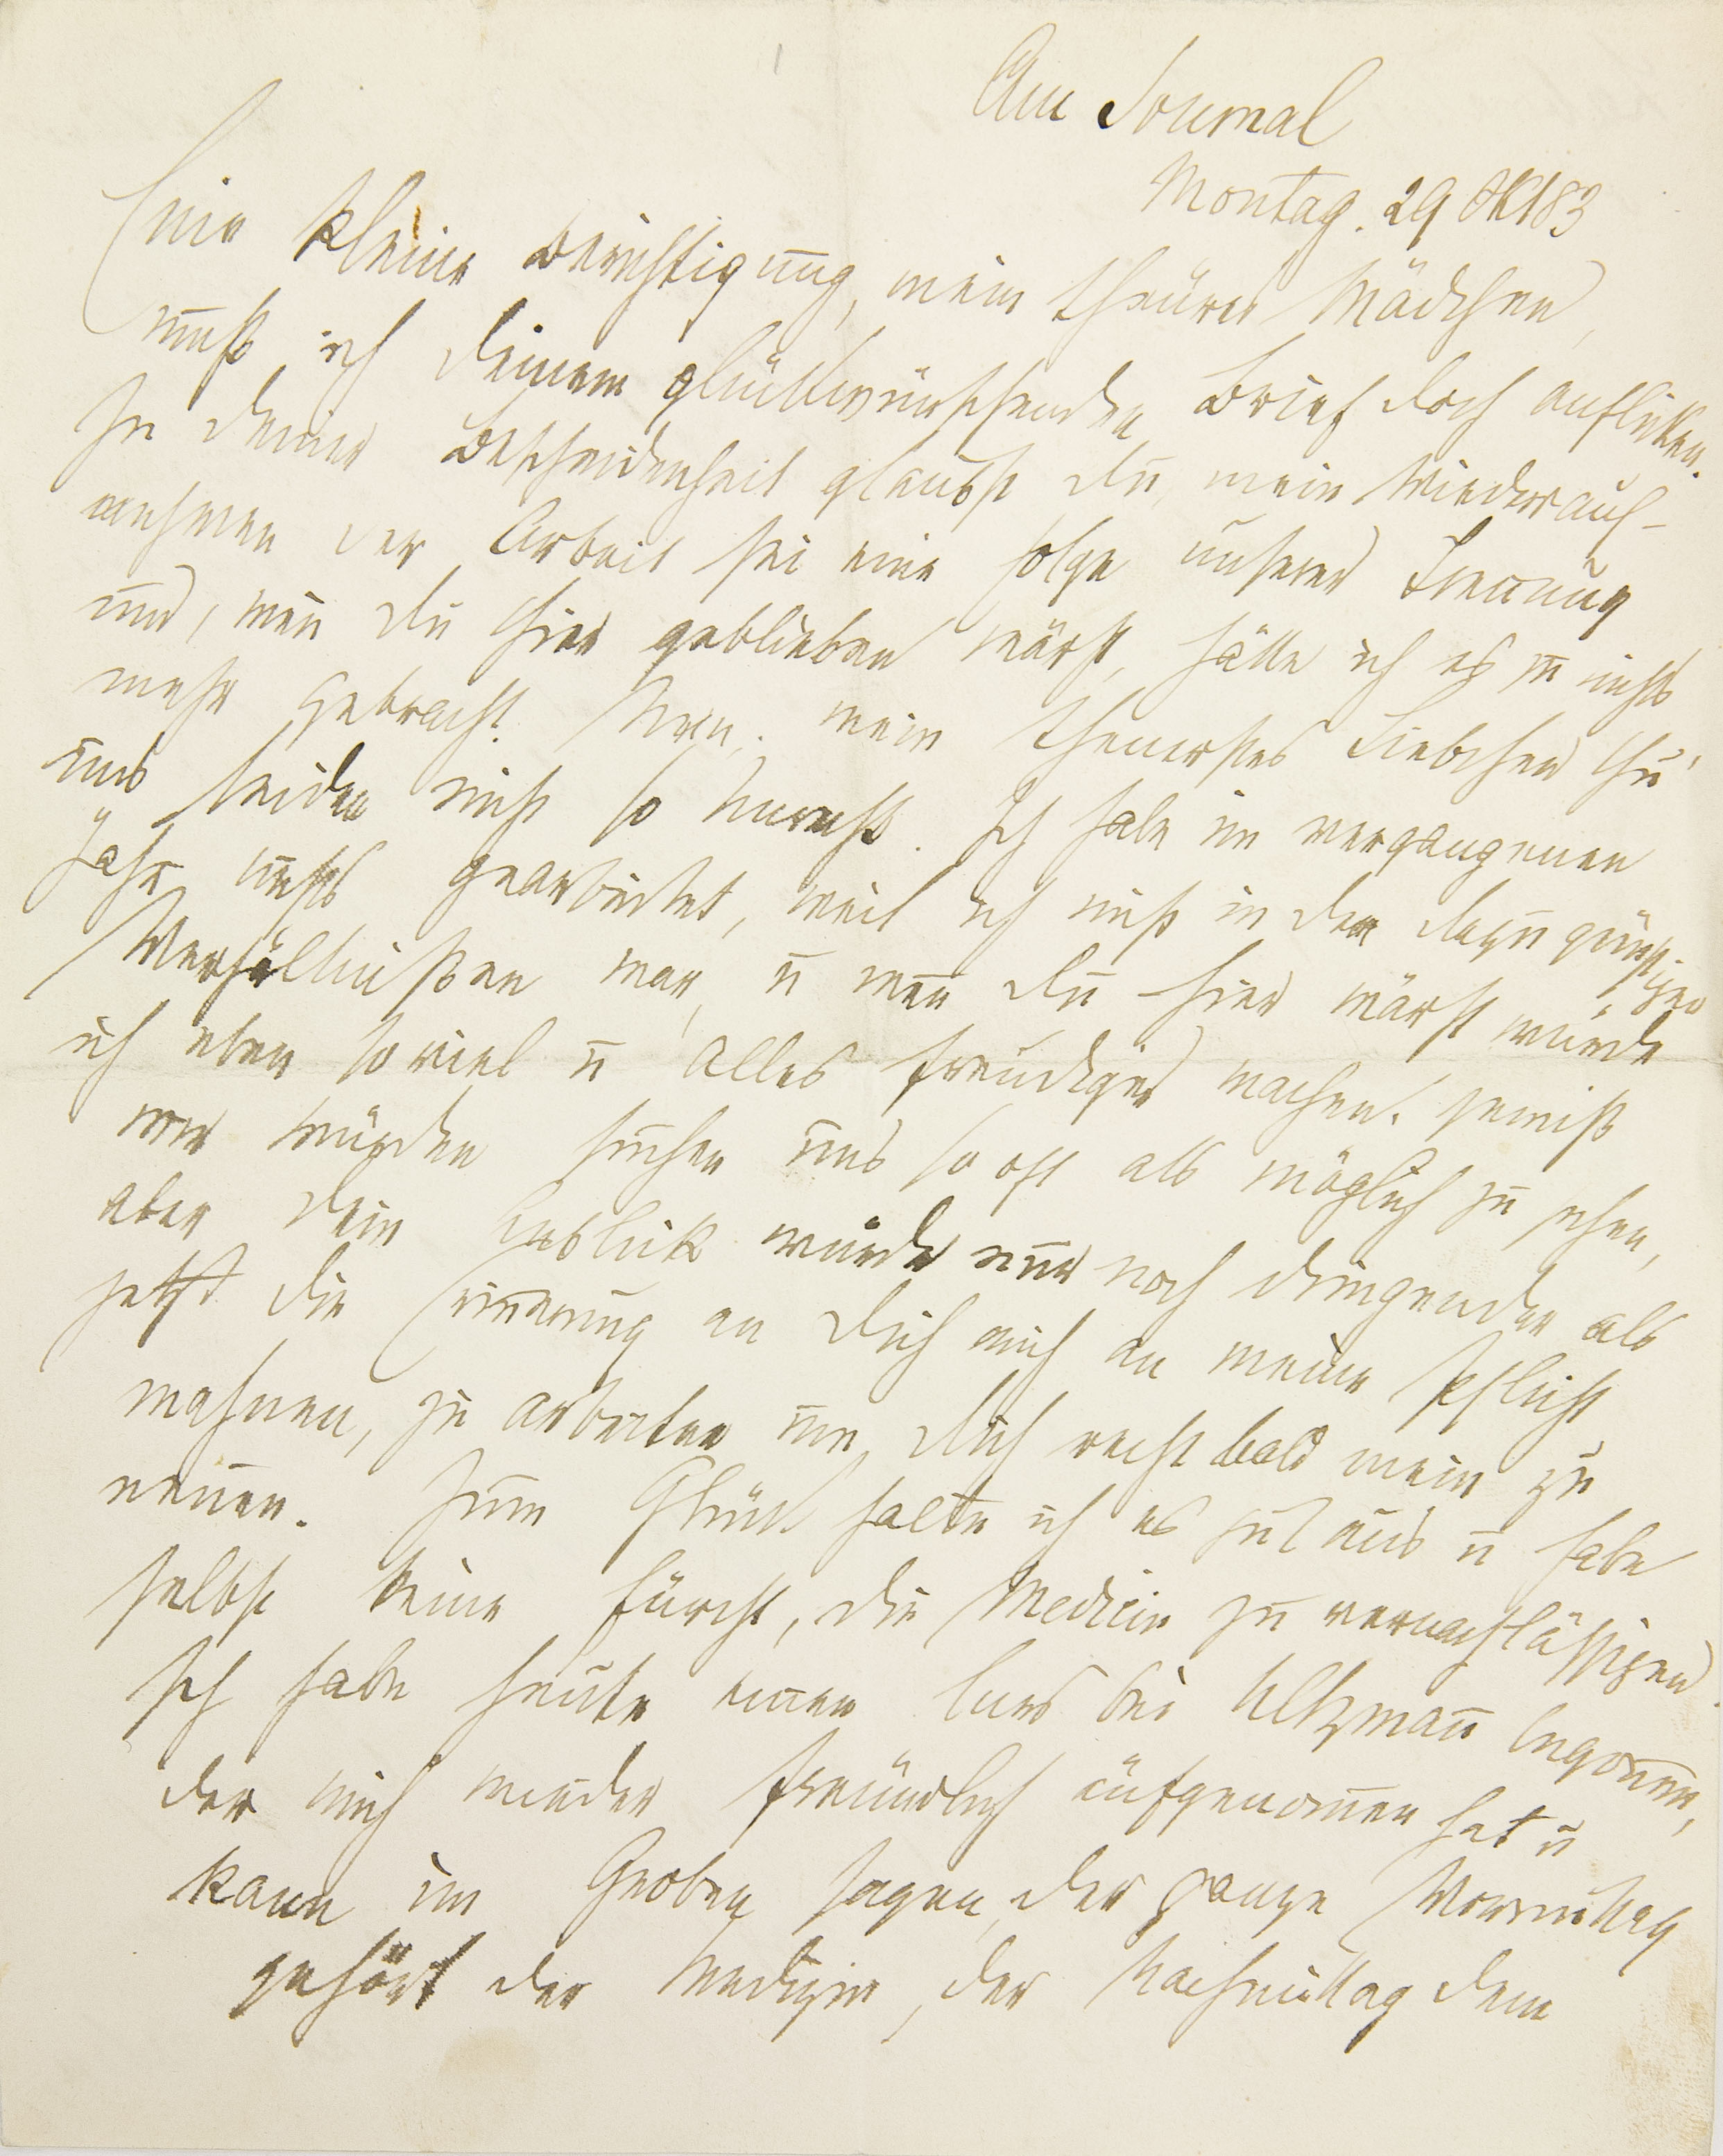 Am Journal
Montag. 29 Okt 83
Eine kleine Berichtigung, mein theures Mädchen,
muß ich Deinem glückwünschenden Brief doch anflicken.
In Deiner Bescheidenheit glaubst Du, mein Wiederauf-
nehmen der Arbeit sei eine Folge unserer Trennung
und, wenn Du hier geblieben wärst, hätte ich es zu nichts
mehr gebracht. Nein, mein theuerstes Liebchen thu'
uns beiden nicht so Unrecht. Ich habe im vergangenen
Jahr nichts gearbeitet, weil ich nicht in den dazu günstigen
Verhältnißen war, u wenn Du hier wärst würde
ich eben so viel u alles freudiger machen. Gewiß
wir würden suchen uns so oft als möglich zu sehen,
aber Dein Anblick würde nur noch dringender als
jetzt die Erinnerung an Dich mich an meine Pflicht
mahnen, zu arbeiten um Dich recht bald mein zu
nennen. Zum Glück halte ich es gut aus u habe
selbst keine Furcht, die Medicin zu vernachlässigen.
Ich habe heute einen Curs bei Ultzmann begonnen,
der mich wieder freundlich aufgenommen hat u
kann im Groben sagen, der ganze Vormittag
gehört der Medizin, der Nachmittag dem